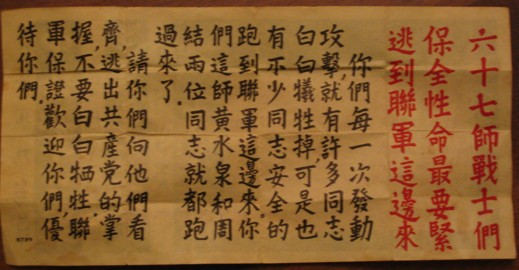 六十七師戰士們
保全性命最要緊
逃到聯軍這邊來
你們每一次發動
攻擊,就有許多同志
白白犧牲掉,可是也
有不少同志安全的
跑到聯軍這邊來.你
們這師黃水泉和周
結兩位同志就都跑
過來了.
請你們向他們看
齊,逃出共產党的掌
握,不要白白牺牲.聯
軍保證歡迎你們,優
待你們.